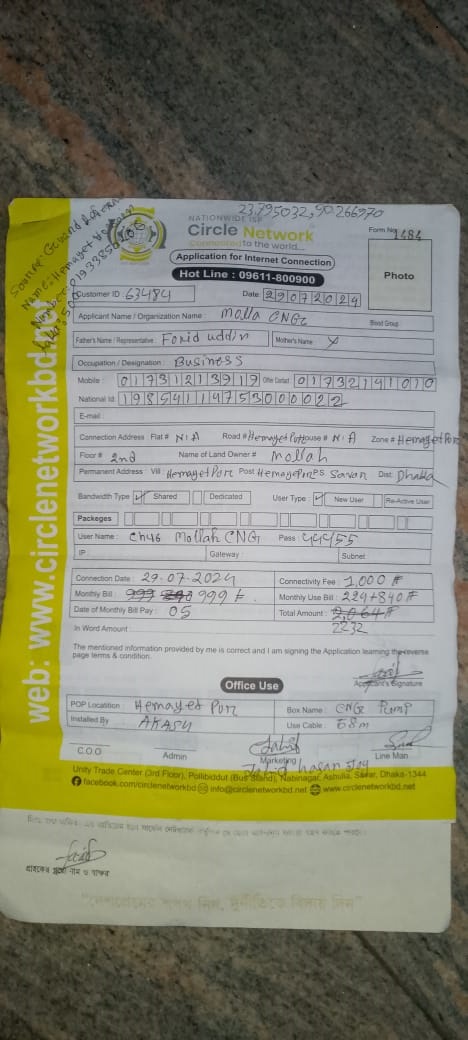 23.795032,90.266970
NATIONWIDE ISP
Circle Network
Connected to the world...
Form No 1484
Application for Internet Connection
Hot Line : 09611-800900
Photo
Customer ID 63484
Date 29072024
Applicant Name / Organization Name : Molla CNG
Blood Group
Father's Name / Representative : Forid uddin
Mother's Name
Occupation / Designation : Business
Mobile : 01731213917 Othe Contact 01732141010
National Id: 19854114753000022
E-mail :
Connection Address Flat# N/A Road# HemayetPur House# N/A Zone# HemayetPur
Floor # 2nd Name of Land Owner # Mollah
Permanent Address Vill HemayetPur Post HemayetPur P.S Savar Dist Dhaka
Bandwidth Type Shared Dedicated User Type New User Re-Active User
Packeges
User Name : Ch46 Mollah CNG Pass 444555
IP : Gateway : Subnet
Connection Date : 29-07-2024 Connectivity Fee : 1,000 ৳
Monthly Bill : 999 ৳ Monthly Use Bill : 224+840 ৳
Date of Monthly Bill Pay : 05 Total Amount : 2,064 ৳
In Word Amount : 2232
The mentioned information provided by me is correct and I am signing the Application learning the reverse
page terms & condition.
Applicant's Signature
Office Use
POP Location : Hemayet Pur Box Name : CNG Pump
Installed By AKASH Use Cable : 68m
C.O.O Admin Marketing Line Man
Jahid hasan Joy
Unity Trade Center (3rd Floor), Pollibiddut (Bus Stand), Nabinagar, Ashulia, Savar, Dhaka-1344
facebook.com/circlenetworkbd info@circlenetworkbd.net www.circlenetworkbd.net
web: www.circlenetworkbd.net
গ্রাহকের পুরো নাম ও স্বাক্ষর
"দেশপ্রেমের শপথ নিন, দুর্নীতিকে বিদায় দিন"